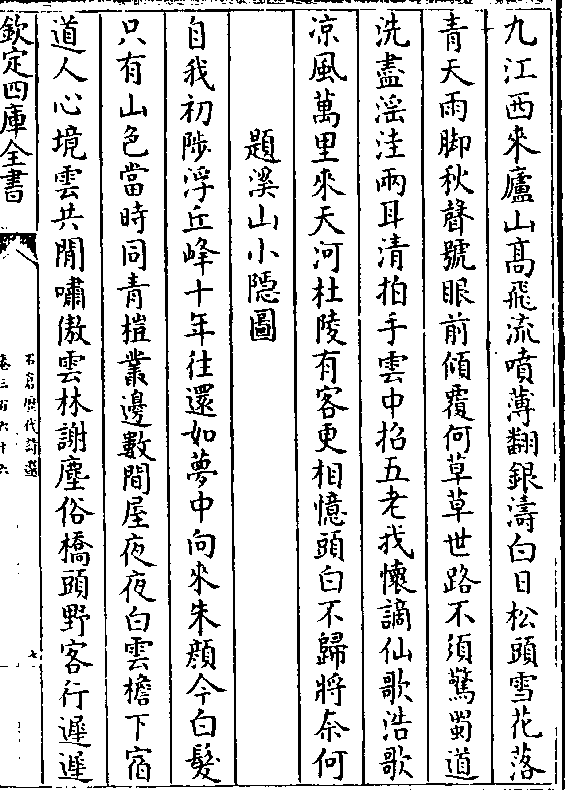 九江西来廬山髙飛流噴薄翻銀濤白日松頭雪花落
青天雨脚秋聲號眼前傾覆何草草世路不須驚蜀道
洗盡淫洼兩耳清拍手雲中招五老我懷謫仙歌浩歌
凉風萬里來天河杜陵有客更相憶頭白不歸將奈何
題溪山小隠圖
自我初陟浮丘峰十年往還如夢中向來朱顔今白髮
只有山色當時同青榿叢邊數間屋夜夜白雲檐下宿
道人心境雲共閒嘯傲雲林謝塵俗橋頭野客行遲遲
欽定四庫全書
石倉歴代詩選
卷三百六十六
七